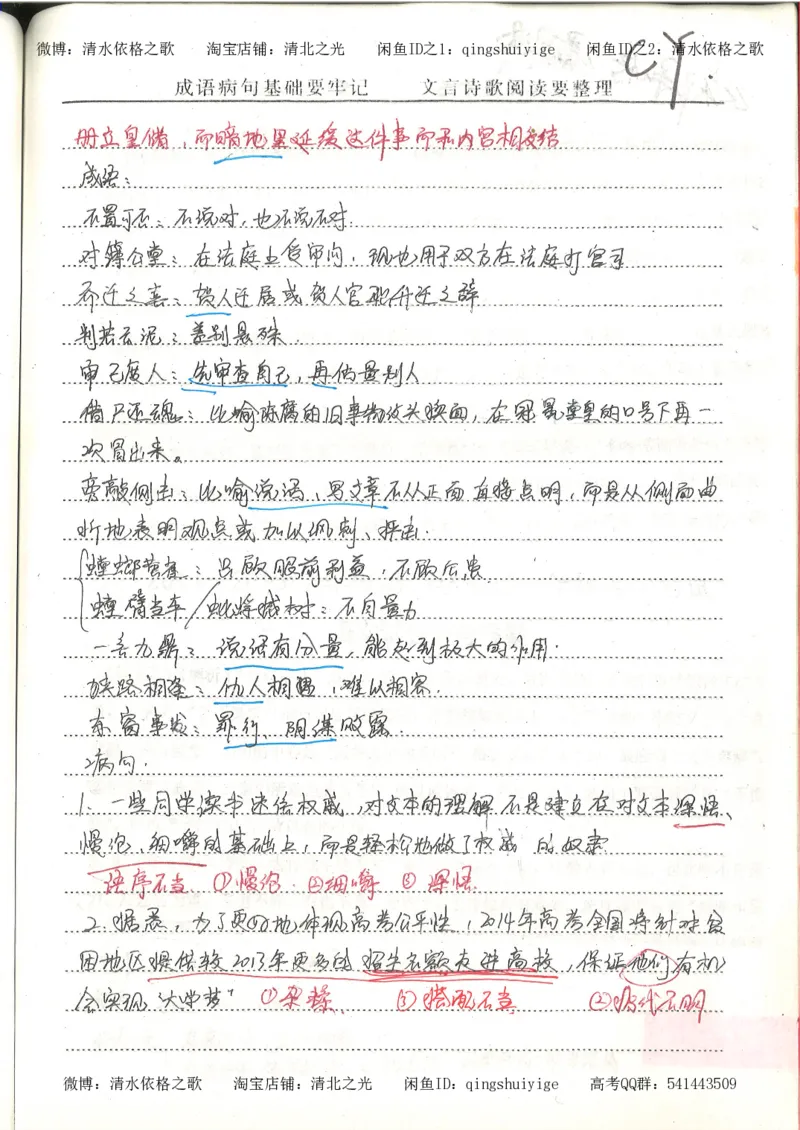 微博：清水依格之歌 淘宝店铺：清北之光 闲鱼ID之1：qingshuiyige 闲鱼ID之2：清水依格之歌
CY.
成语病句基础要牢记 文言诗歌阅读要整理
册立皇储，而暗地里延缓这件事而和内宫相交结
成语：
不置可否：不说对，也不说不对.
对簿公堂：在法庭上受审问，现也用于双方在法庭打官司
乔迁之喜：贺人迁居或贺人官职升迁之辞
判若云泥：差别悬殊.
审己度人：先审查自己，再估量别人
借尸还魂：比喻陈腐的旧事物改头换面，在口号下再一
次冒出来。
旁敲侧击：比喻说话、写文章不从正面直接点明，而是从侧面曲
折地表明观点或加以讽刺、抨击.
螳螂黄雀：只顾眼前利益，不顾后患
螳臂当车/蚍蜉撼树：不自量力
一言九鼎：说话有分量，能起到极大的作用.
狭路相逢：仇人相遇，难以相容.
东窗事发：罪行、阴谋败露.
病句.
1、一些同学读书迷信权威，对文本的理解不是建立在对文本深悟、
慢沦、细嚼的基础上，而是轻松地做了权威的奴隶
语序不当 ①慢沦 ②细嚼 ③深悟.
2、据悉，为了更好地体现高考公平性，2014年高考全国将针对贫
困地区提供较2013年更多的招生名额走进高校，保证他们有机
会实现“大学梦” ①杂糅 ③搭配不当 ②指代不明
微博：清水依格之歌 淘宝店铺：清北之光 闲鱼ID：qingshuiyige 高考QQ群：541443509